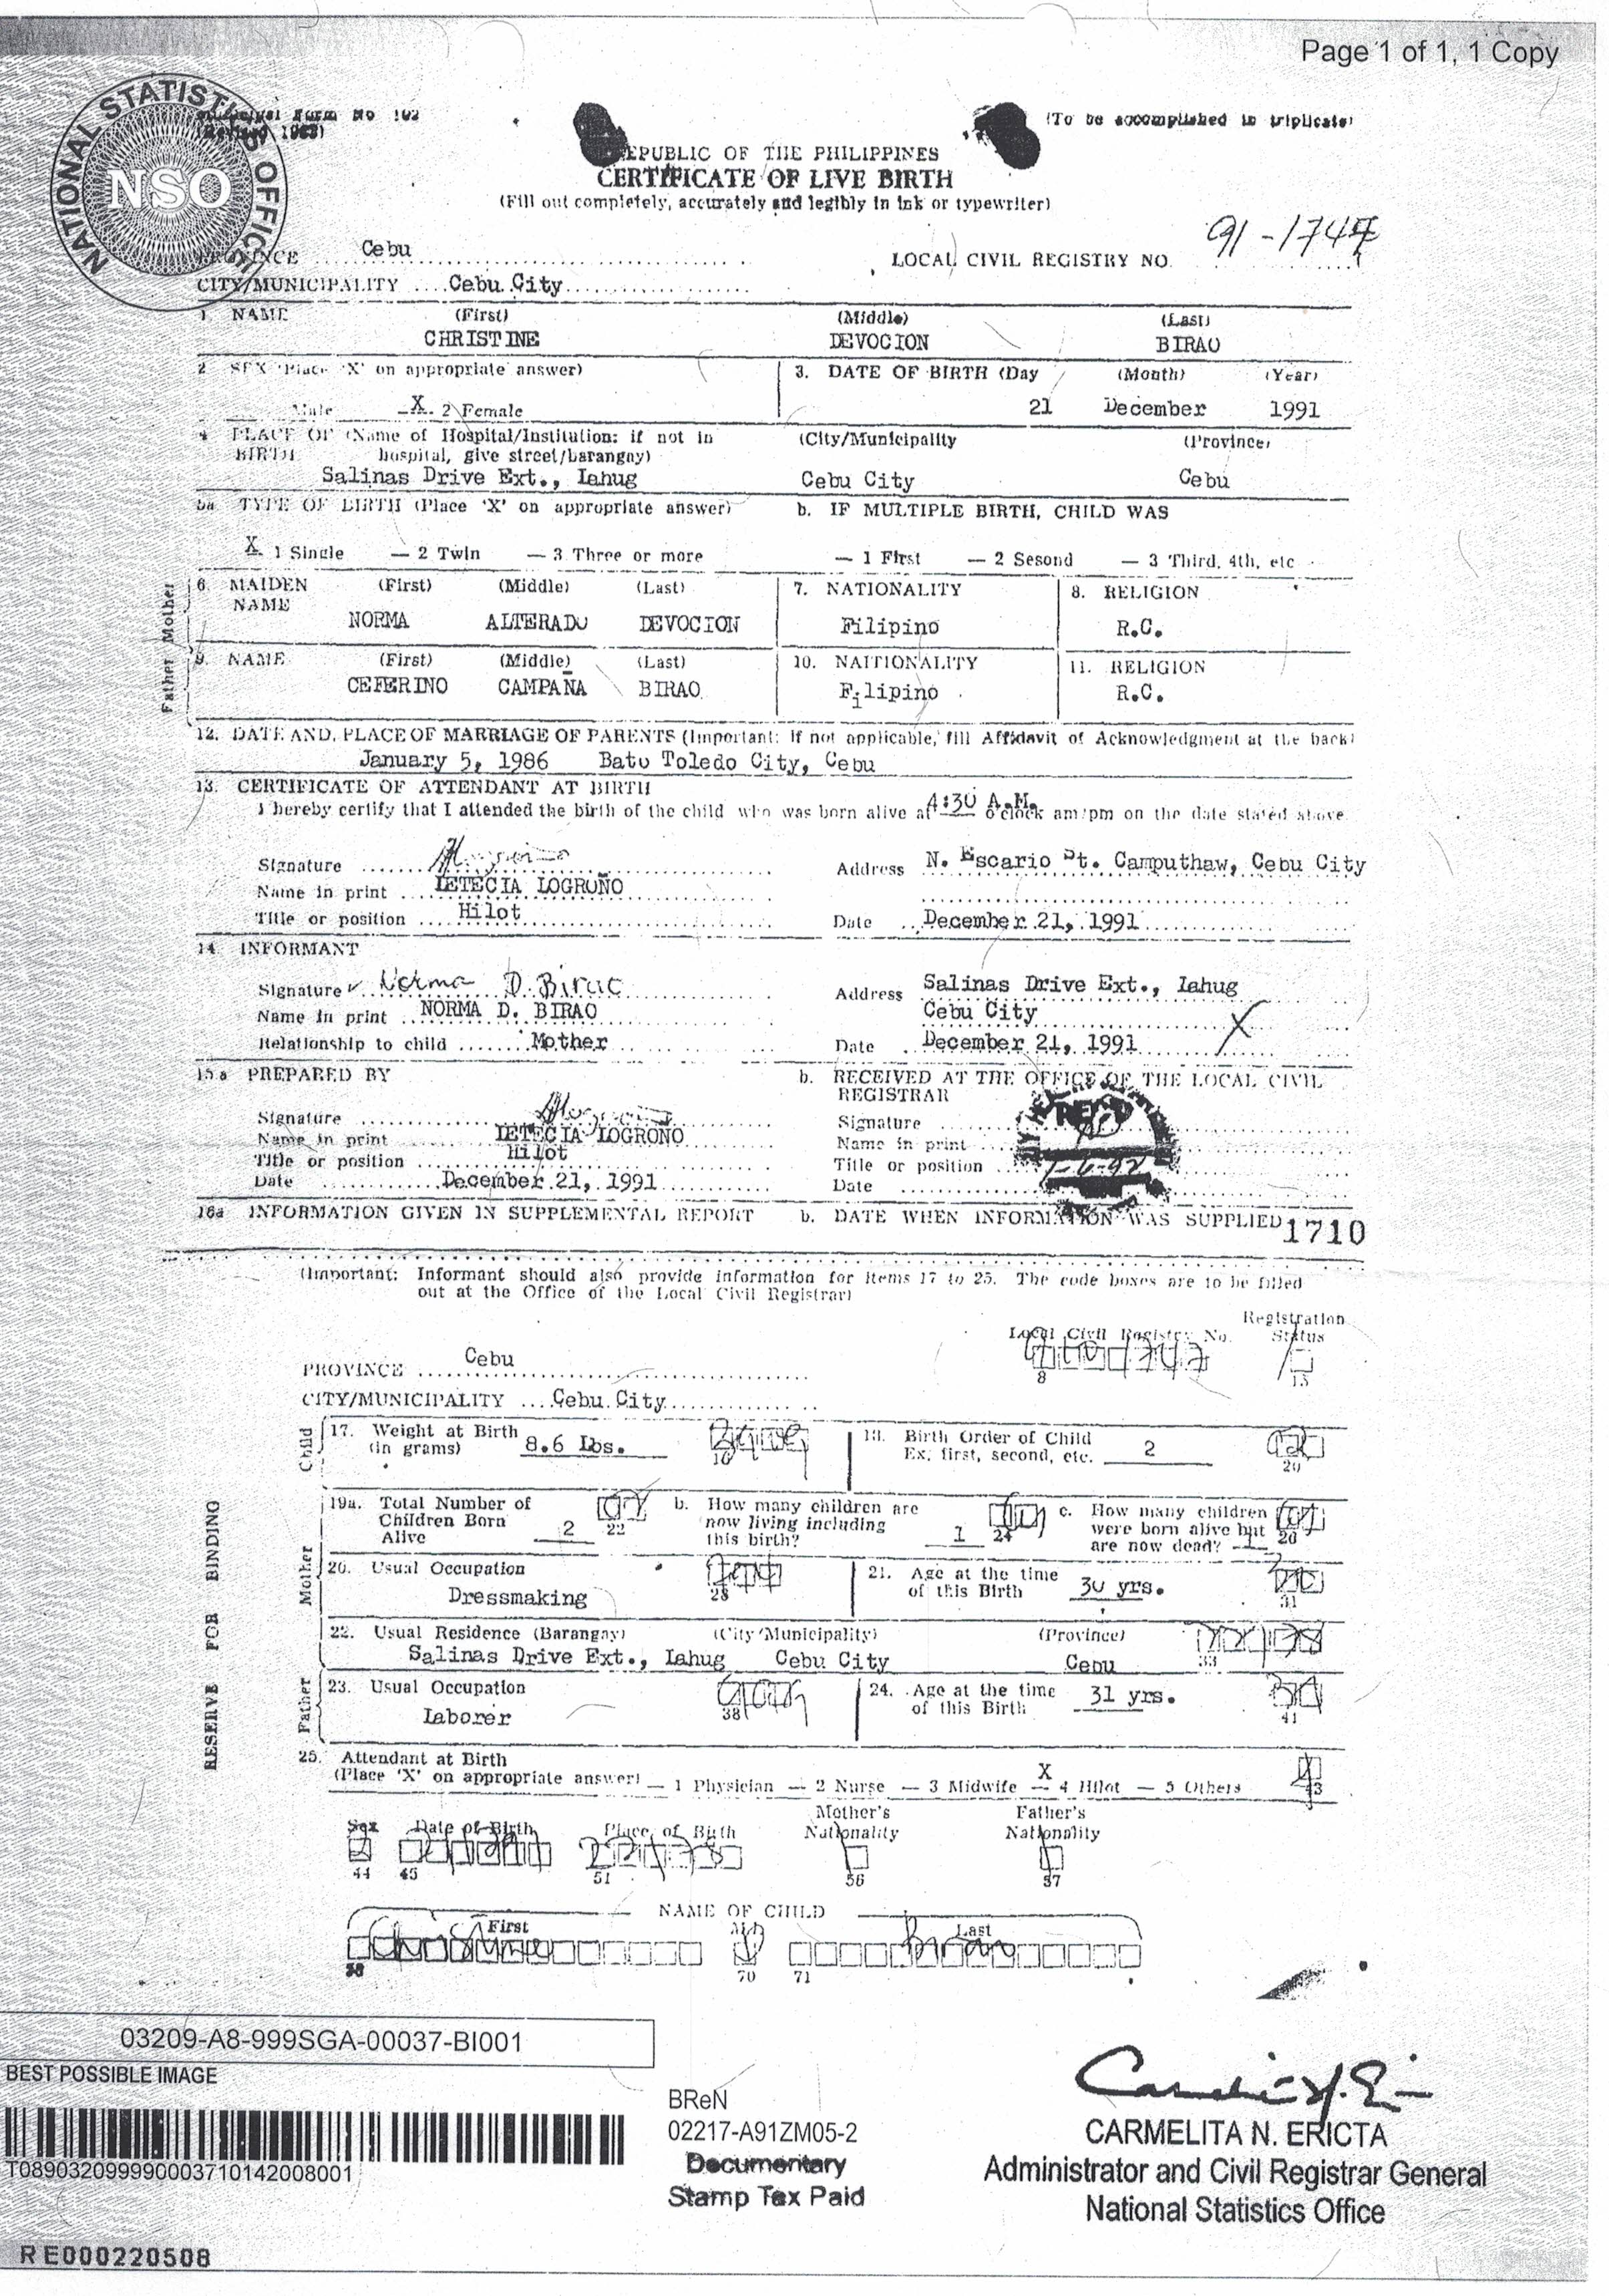 Page 1 of 1, 1 Copy
NATIONAL STATISTICS OFFICE
NSO
Form No 102
(To be accomplished in triplicate)
REPUBLIC OF THE PHILIPPINES
CERTIFICATE OF LIVE BIRTH
(Fill out completely, accurately and legibly in ink or typewriter)
PROVINCE Cebu
LOCAL CIVIL REGISTRY NO.
CITY/MUNICIPALITY Cebu City
1. NAME (First) (Middle) (Last)
CHRISTINE DEVOCION BIRAO
2 SEX (Place 'X' on appropriate answer) 3. DATE OF BIRTH (Day (Month) (Year)
Male X 2 Female 21 December 1991
4 PLACE OF (Name of Hospital/Institution: if not in (City/Municipality (Province)
BIRTH hospital, give street/barangay)
Salinas Drive Ext., Lahug Cebu City Cebu
5a TYPE OF BIRTH (Place 'X' on appropriate answer) b. IF MULTIPLE BIRTH, CHILD WAS
X 1 Single — 2 Twin — 3 Three or more — 1 First — 2 Sesond — 3 Third, 4th, etc
Mother
6. MAIDEN (First) (Middle) (Last) 7. NATIONALITY 8. RELIGION
NAME
NORMA ALTERADO DEVOCION Filipino R.C.
Father
9. NAME (First) (Middle) (Last) 10. NAITIONALITY 11. RELIGION
CEFERINO CAMPAÑA BIRAO Filipino R.C.
12. DATE AND PLACE OF MARRIAGE OF PARENTS (Important: If not applicable, fill Affidavit of Acknowledgment at the back)
January 5, 1986 Bato Toledo City, Cebu
13. CERTIFICATE OF ATTENDANT AT BIRTH
I hereby certify that I attended the birth of the child who was born alive at 4:30 A.M. o'clock am/pm on the date stated above.
Signature Address N. Escario St. Camputhaw, Cebu City
Name in print LETECIA LOGROÑO
Title or position Hilot Date December 21, 1991
14 INFORMANT
Signature Norma D. Birao Address Salinas Drive Ext., Lahug
Name in print NORMA D. BIRAO Cebu City X
Relationship to child Mother Date December 21, 1991
15.a PREPARED BY b. RECEIVED AT THE OFFICE OF THE LOCAL CIVIL
REGISTRAR
Signature Signature
Name in print LETECIA LOGROÑO Name in print
Title or position Hilot Title or position
Date December 21, 1991 Date
16a INFORMATION GIVEN IN SUPPLEMENTAL REPORT b. DATE WHEN INFORMATION WAS SUPPLIED 1710
(Important: Informant should also provide information for items 17 to 25. The code boxes are to be filled
out at the Office of the Local Civil Registrar)
Local Civil Registry No. Registration Status
8 15
PROVINCE Cebu
CITY/MUNICIPALITY Cebu City
Child
17. Weight at Birth 18. Birth Order of Child
(in grams) 8.6 Lbs. Ex: first, second, etc. 2
20
Mother
19a. Total Number of b. How many children are c. How many children
Children Born now living including were born alive but
Alive 2 22 this birth? 1 24 are now dead? 1
20. Usual Occupation 21. Age at the time
Dressmaking 28 of this Birth 30 yrs. 31
22. Usual Residence (Barangay) (City/Municipality) (Province)
Salinas Drive Ext., Lahug Cebu City Cebu 33
Father
23. Usual Occupation 24. Age at the time
Laborer 38 of this Birth 31 yrs. 41
25. Attendant at Birth
(Place 'X' on appropriate answer) — 1 Physician — 2 Nurse — 3 Midwife X 4 Hilot — 5 Others
RESERVE FOR BINDING
Sex Date of Birth Place of Birth Mother's Nationality Father's Nationality
44 45 51 56 57
NAME OF CHILD
First Last
70 71
03209-A8-999SGA-00037-BI001
BEST POSSIBLE IMAGE
T089032099990003710142008001
BReN
02217-A91ZM05-2
Documentary
Stamp Tax Paid
CARMELITA N. ERICTA
Administrator and Civil Registrar General
National Statistics Office
RE000220508